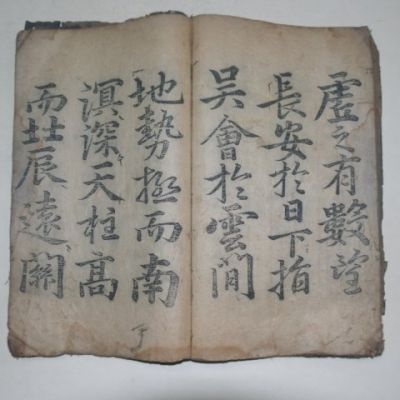 虛之有數望
長安於日下指
吴會於雲間
地勢極而南
溟深天柱高
而北辰遠關